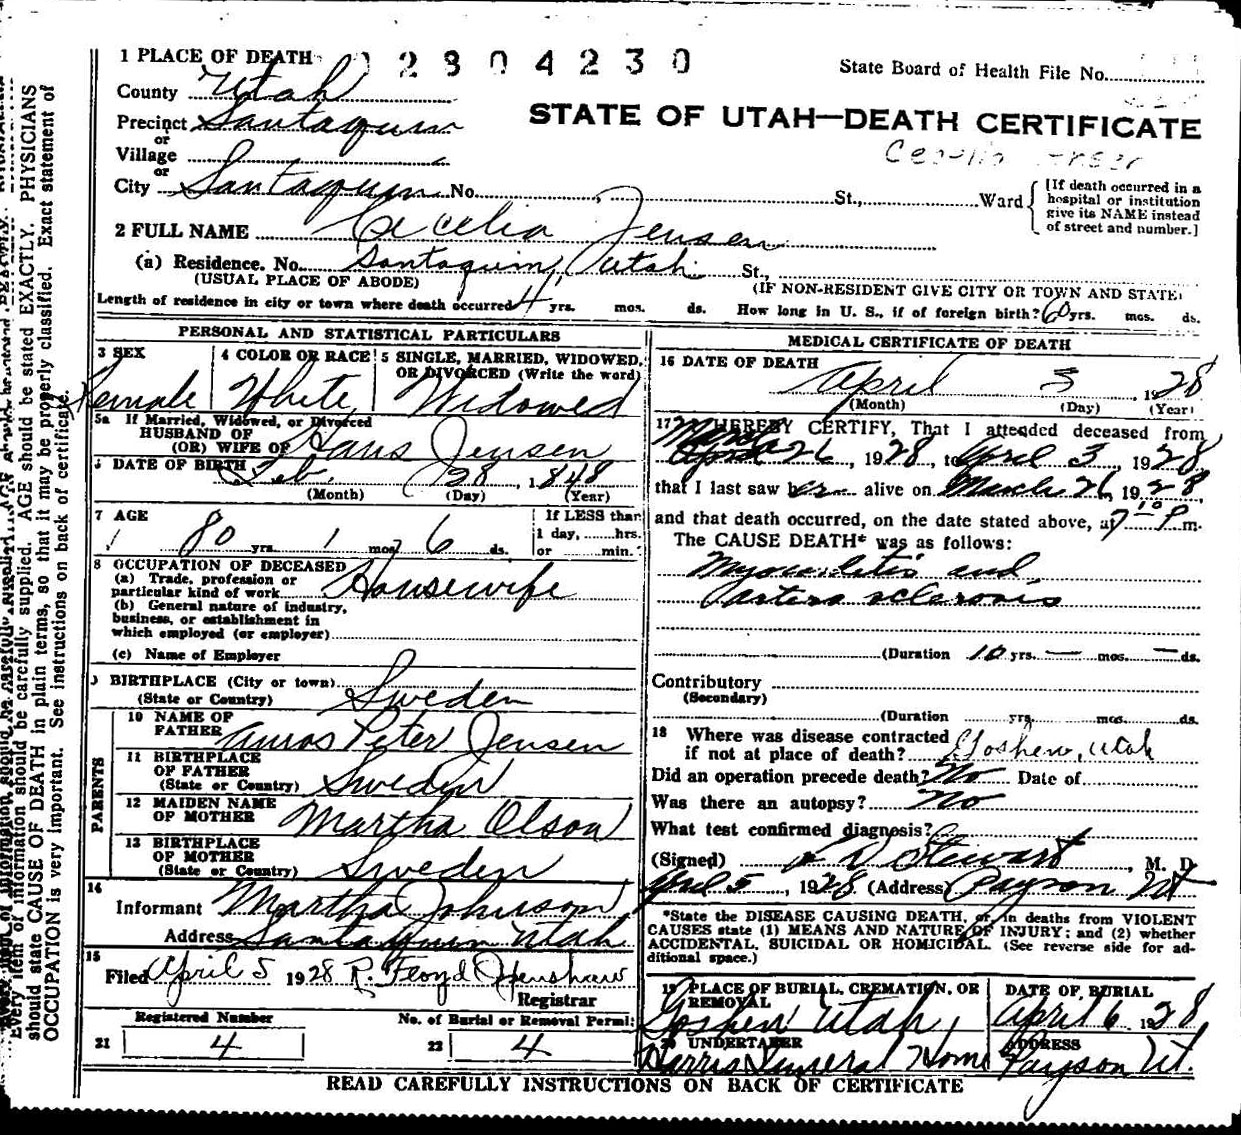 1 PLACE OF DEATH 2 8 0 4 2 3 0
State Board of Health File No.
County Utah
STATE OF UTAH—DEATH CERTIFICATE
Precinct Santaquin
or
Village
or
City Santaquin No. St., Ward
[If death occurred in a
hospital or institution
give its NAME instead
of street and number.]
2 FULL NAME Cecelia Jensen
(a) Residence. No. Santaquin, Utah St.,
(USUAL PLACE OF ABODE) (IF NON-RESIDENT GIVE CITY OR TOWN AND STATE)
Length of residence in city or town where death occurred 4 yrs. mos. ds. How long in U. S., if of foreign birth? 60 yrs. mos. ds.
PERSONAL AND STATISTICAL PARTICULARS
3 SEX 4 COLOR OR RACE 5 SINGLE, MARRIED, WIDOWED,
OR DIVORCED (Write the word)
Female White Widowed
5a If Married, Widowed, or Divorced
HUSBAND OF
(OR) WIFE OF Hans Jensen
DATE OF BIRTH Feb. 28, 1848
(Month) (Day) (Year)
7 AGE If LESS than
1 day, hrs.
80 yrs. 1 mos. 6 ds. or min.
8 OCCUPATION OF DECEASED
(a) Trade, profession or
particular kind of work Housewife
(b) General nature of industry,
business, or establishment in
which employed (or employer)
(c) Name of Employer
BIRTHPLACE (City or town)
(State or Country) Sweden
PARENTS
10 NAME OF
FATHER Amos Peter Jensen
11 BIRTHPLACE
OF FATHER
(State or Country) Sweden
12 MAIDEN NAME
OF MOTHER Martha Olson
13 BIRTHPLACE
OF MOTHER
(State or Country) Sweden
14
Informant Martha Johnson
Address Santaquin Utah
15
Filed April 5 1928 R. Floyd Openshaw
Registrar
Registered Number No. of Burial or Removal Permit
21 4 22 4
MEDICAL CERTIFICATE OF DEATH
16 DATE OF DEATH
April 3, 1928
(Month) (Day) (Year)
17 I HEREBY CERTIFY, That I attended deceased from
March 26, 1928, to April 3 1928
that I last saw her alive on March 26, 1928,
and that death occurred, on the date stated above, at 7 10 P m.
The CAUSE DEATH* was as follows:
Myocarditis and
Arterio sclerosis
(Duration 10 yrs. — mos. — ds.
Contributory
(Secondary)
(Duration yrs. mos. ds.
18 Where was disease contracted
if not at place of death? Goshen, Utah
Did an operation precede death? No Date of
Was there an autopsy? No
What test confirmed diagnosis?
(Signed) Stewart, M. D.
April 5, 1928 (Address) Payson Ut
*State the DISEASE CAUSING DEATH, or, in deaths from VIOLENT
CAUSES state (1) MEANS AND NATURE OF INJURY; and (2) whether
ACCIDENTAL, SUICIDAL OR HOMICIDAL. (See reverse side for ad-
ditional space.)
19 PLACE OF BURIAL, CREMATION, OR
REMOVAL
Goshen Utah,
DATE OF BURIAL
April 6 1928
20 UNDERTAKER
Harris Funeral Home
ADDRESS
Payson Ut.
READ CAREFULLY INSTRUCTIONS ON BACK OF CERTIFICATE
Every item of information should be carefully supplied. AGE should be stated EXACTLY. PHYSICIANS
should state CAUSE OF DEATH in plain terms, so that it may be properly classified. Exact statement of
OCCUPATION is very important. See instructions on back of certificate.